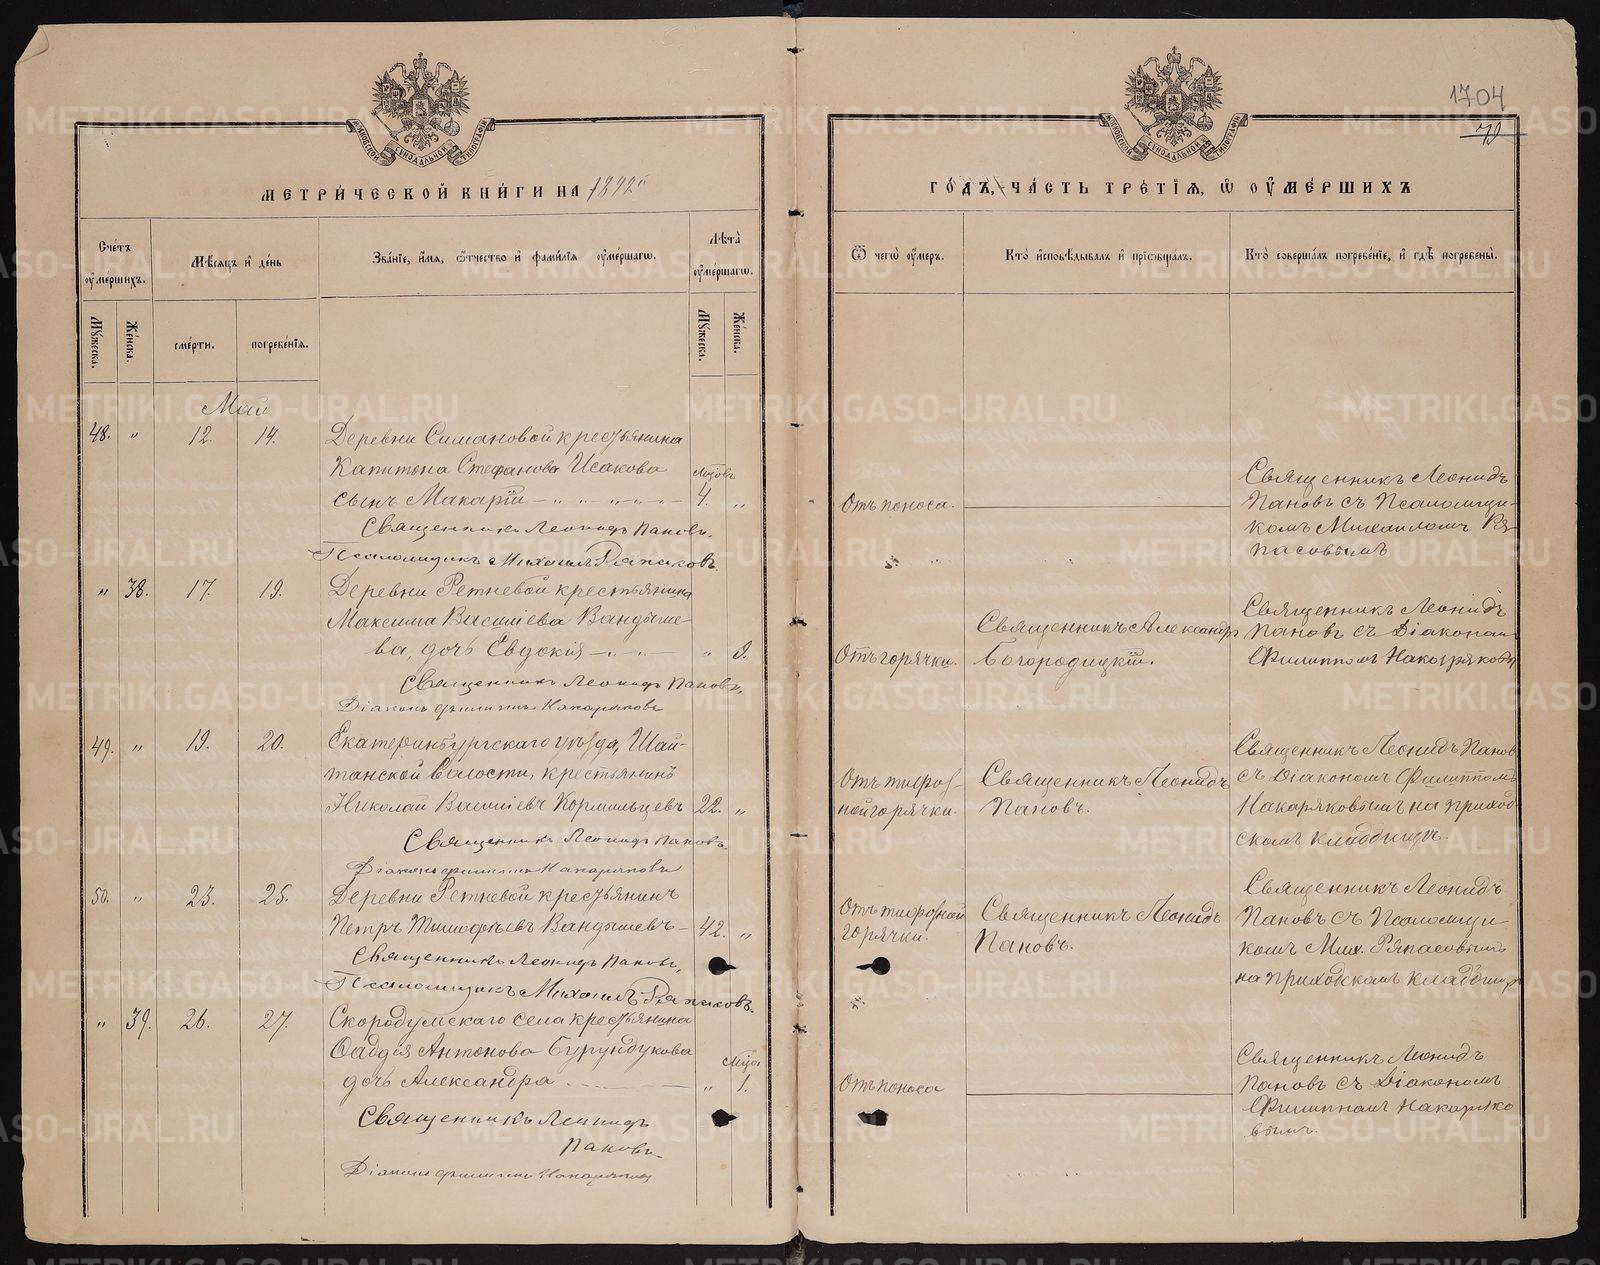 1704
79
МЕТРИЧЕСКОЙ КНИГИ НА 1892 ГОДЪ, ЧАСТЬ ТРЕТІЯ, Ѿ ОУМЕРШИХЪ
Счетъ оумершихъ.
Мѣсяцъ и день
Званіе, имя, ѿчество и фамилія оумершагѡ.
Лѣта оумершагѡ.
Ѿ чегѡ оумеръ.
Кто исповѣдывалъ и пріобщалъ.
Кто совершалъ погребеніе, и гдѣ погребены.
Мужеска.
Женска.
смерти.
погребенія.
Мужеска.
Женска.
Май
48. " 12. 14.
Деревни Симановой крестьянина
Капитона Стефанова Исакова
сынъ Макарій
4. "
Священникъ Леонидъ Пановъ.
Псаломщикъ Михаилъ Ряпасовъ.
Отъ поноса.
Священникъ Леонидъ
Пановъ съ Псаломщи-
комъ Михаиломъ Ря-
пасовымъ
" 38. 17. 19.
Деревни Ретневой крестьянина
Максима Василіева Вандыше-
ва, дочь Евдокія
" 9.
Священникъ Леонидъ Пановъ,
Діаконъ Филиппъ Накаряковъ
Отъ горячки.
Священникъ Александръ
Богородицкій.
Священникъ Леонидъ
Пановъ съ Діакономъ
Филиппомъ Накаряковы
49. " 19. 20.
Екатеринбургскаго уѣзда, Шай-
танской волости, крестьянинъ
Николай Василіевъ Кормильцевъ 22. "
Священникъ Леонидъ Пановъ.
Діаконъ Филиппъ Накаряковъ
Отъ тифоз-
ной горячки.
Священникъ Леонидъ
Пановъ.
Священникъ Леонидъ Панов
съ Діакономъ Филиппомъ
Накаряковымъ на приход-
скомъ кладбищѣ.
50. " 23. 25.
Деревни Ретневой крестьянинъ
Петръ Тимофѣевъ Вандышевъ - 42. "
Священникъ Леонидъ Пановъ,
Псаломщикъ Михаилъ Ряпасовъ.
Отъ тифозной
горячки.
Священникъ Леонидъ
Пановъ.
Священникъ Леонидъ
Пановъ съ Псаломщи
комъ Мих. Ряпасовымъ
на приходскомъ кладбищѣ
" 39. 26. 27.
Скородумскаго села крестьянина
Фаддія Антонова Бурундукова
дочь Александра
" 1.
Священникъ Леонидъ
Пановъ.
Діаконъ Филиппъ Накаряковъ
Отъ поноса
Священникъ Леонидъ
Пановъ съ Діакономъ
Филиппомъ Накаряко
вымъ.
METRIKI.GASO-URAL.RU